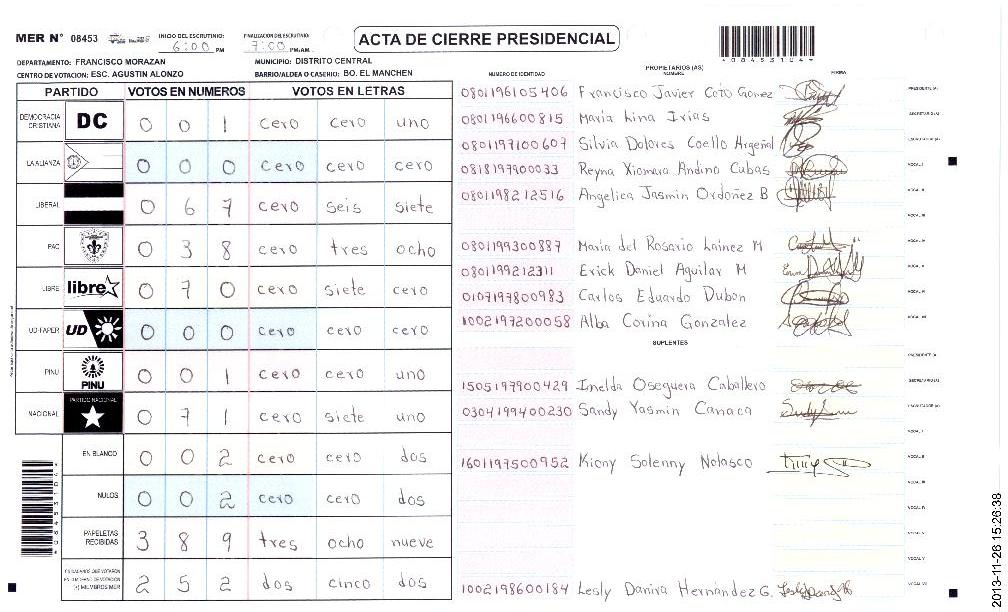 MER N° 08453 INICIO DEL ESCRUTINIO: 6:00 PM FINALIZACION DEL ESCRUTINIO: 7:00 PM/AM ACTA DE CIERRE PRESIDENCIAL 08453104
DEPARTAMENTO: FRANCISCO MORAZAN MUNICIPIO: DISTRITO CENTRAL
CENTRO DE VOTACION: ESC. AGUSTIN ALONZO BARRIO/ALDEA O CASERIO: BO. EL MANCHEN
PARTIDO VOTOS EN NUMEROS VOTOS EN LETRAS
DEMOCRACIA CRISTIANA DC 0 0 1 cero cero uno
LA ALIANZA 0 0 0 cero cero cero
LIBERAL 0 6 7 cero seis siete
PAC 0 3 8 cero tres ocho
LIBRE libre 0 7 0 cero siete cero
UD-FAPER UD 0 0 0 cero cero cero
PINU PINU 0 0 1 cero cero uno
NACIONAL PARTIDO NACIONAL 0 7 1 cero siete uno
EN BLANCO 0 0 2 cero cero dos
NULOS 0 0 2 cero cero dos
PAPELETAS RECIBIDAS 3 8 9 tres ocho nueve
CIUDADANOS QUE VOTARON (+) MIEMBROS MER 2 5 2 dos cinco dos
NUMERO DE IDENTIDAD PROPIETARIOS (AS) NOMBRE FIRMA
0801196105406 Francisco Javier Coto Gomez PRESIDENTE (A)
0801196600815 Maria Lina Irias SECRETARIO (A)
0801197100607 Silvia Dolores Coello Argeñal ESCRUTADOR (A)
0818197900033 Reyna Xiomara Andino Cubas VOCAL I
0801198212516 Angelica Jasmin Ordoñez B VOCAL II
VOCAL III
0801199300887 Maria del Rosario Lainez M VOCAL IV
0801199212311 Erick Daniel Aguilar M VOCAL V
0107197800983 Carlos Eduardo Dubon VOCAL VI
1002197200058 Alba Corina Gonzalez VOCAL VII
SUPLENTES
PRESIDENTE (A)
1505197900429 Imelda Oseguera Caballero SECRETARIO (A)
0304199400230 Sandy Yasmin Canaca ESCRUTADOR (A)
VOCAL I
1601197500952 Kiony Solenny Nolasco VOCAL II
VOCAL III
VOCAL IV
VOCAL V
VOCAL VI
1002198600184 Lesly Danira Hernández G. VOCAL VII
2013-11-26 15:26:38